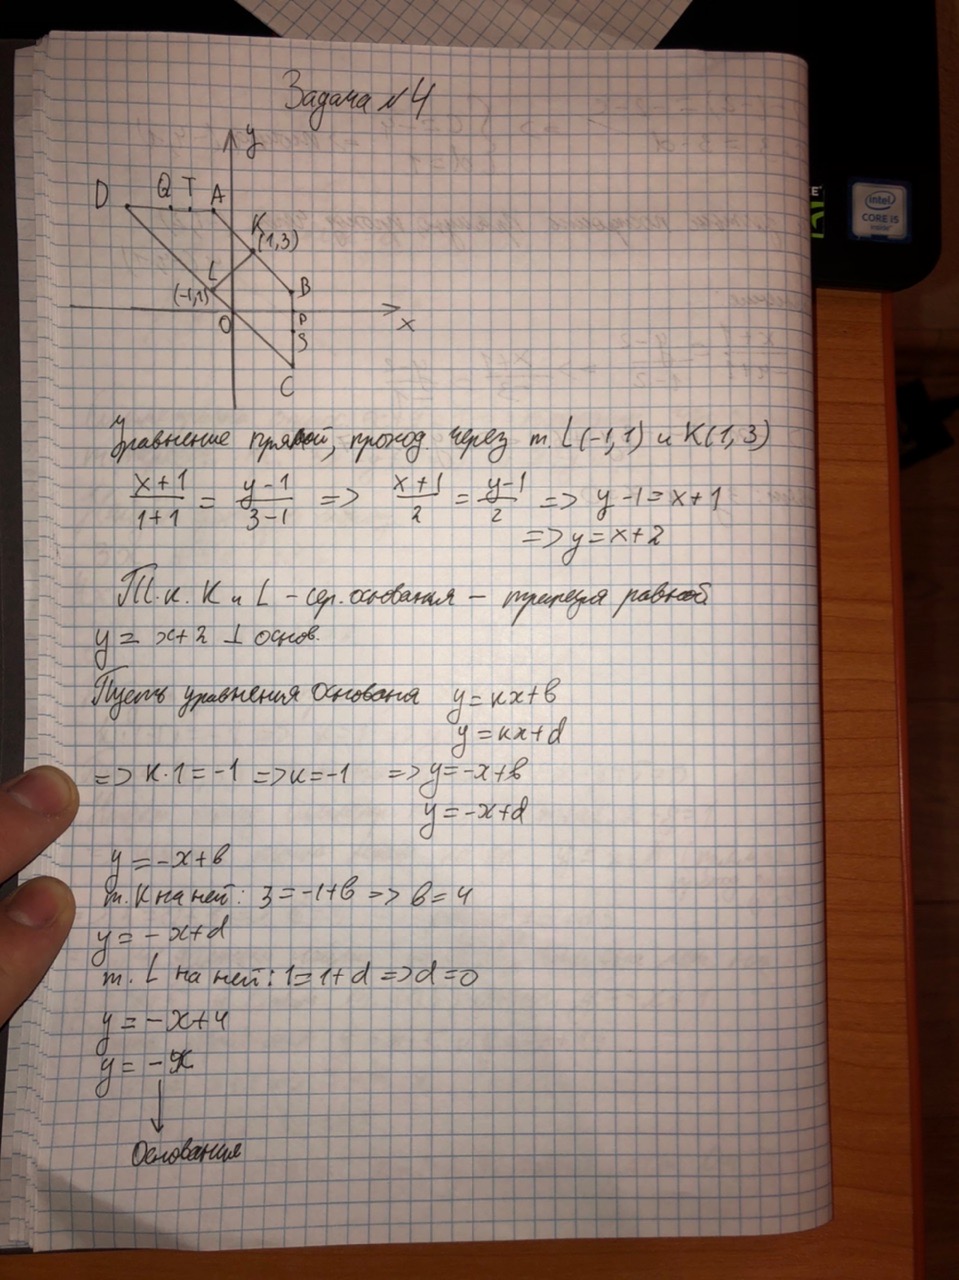 Задача №4
y
D Q T A
K
(1,3)
L
(-1,1)
B
O
P
x
S
C
Уравнение прямой, проход. через т. L(-1,1) и K(1,3)
(x+1)/(1+1) = (y-1)/(3-1) => (x+1)/2 = (y-1)/2 => y-1=x+1
=> y=x+2
Т.к. K и L - сер. основания - трапеция равноб
y = x+2 ⊥ основ.
Пусть уравнения основана y=кx+b
y=кx+d
=> к·1=-1 => к=-1 => y=-x+b
y=-x+d
y=-x+b
т. K на ней: 3=-1+b => b=4
y=-x+d
т. L на ней: 1=1+d => d=0
y=-x+4
y=-x
Основания
intel
CORE i5
inside